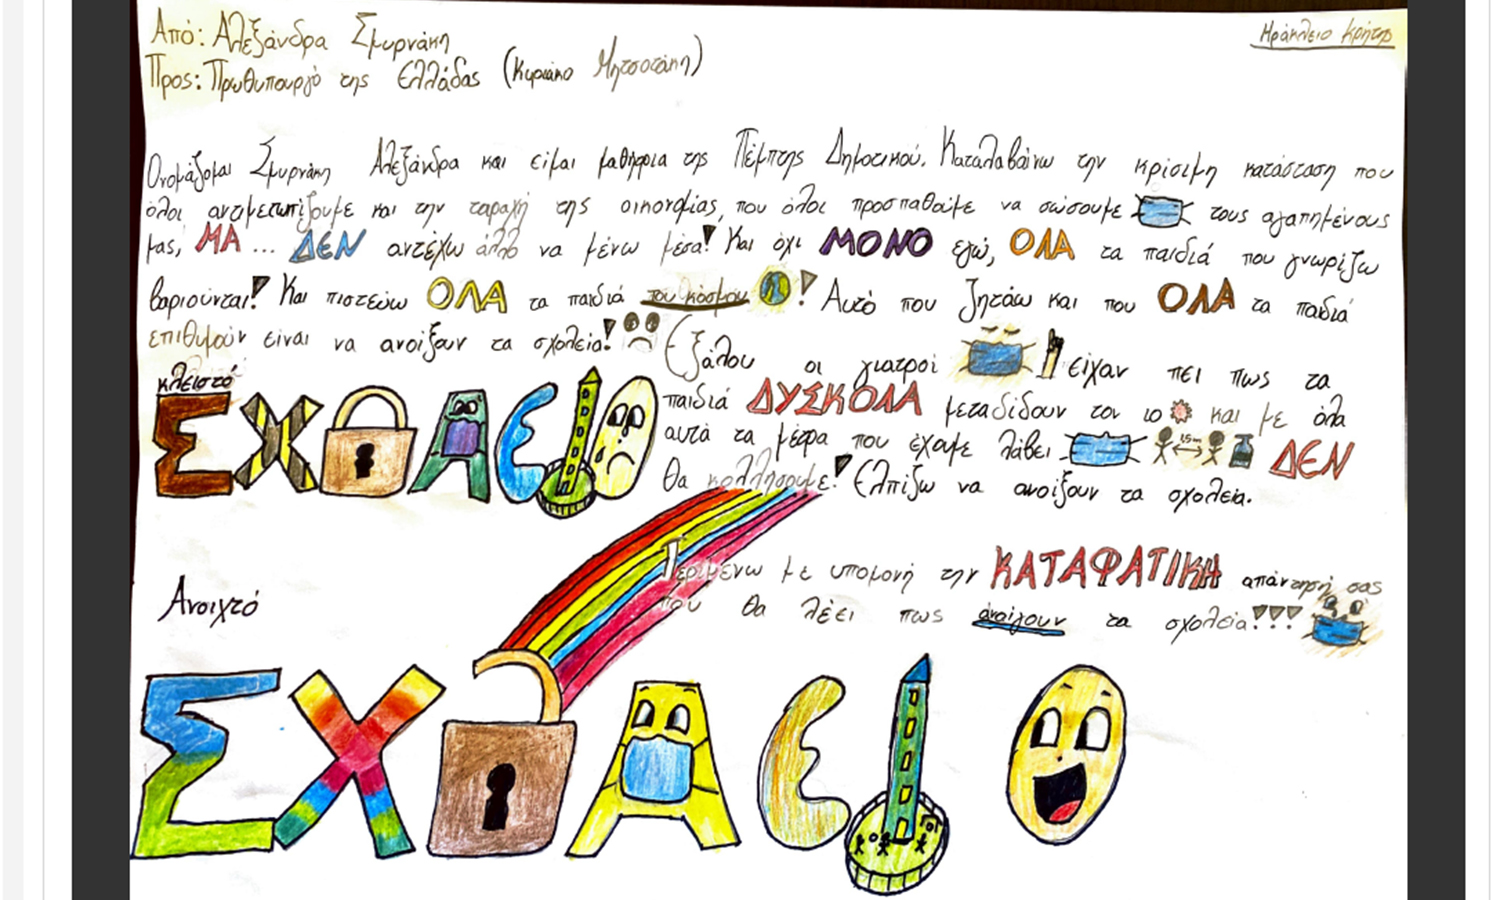 Από: Αλεξάνδρα Σμυρνάκη
Ηράκλειο Κρήτης
Προς: Πρωθυπουργό της Ελλάδας (Κυριάκο Μητσοτάκη)
Ονομάζομαι Σμυρνάκη Αλεξάνδρα και είμαι μαθήτρια της Πέμπτης Δημοτικού. Καταλαβαίνω την κρίσιμη κατάσταση που
όλοι αντιμετωπίζουμε και την ταραχή της οικονομίας, που όλοι προσπαθούμε να σώσουμε τους αγαπημένους
μας, ΜΑ... ΔΕΝ αντέχω άλλο να μένω μέσα! Και όχι ΜΟΝΟ εγώ, ΟΛΑ τα παιδιά που γνωρίζω
βαριούνται! Και πιστεύω ΟΛΑ τα παιδιά του κόσμου! Αυτό που ζητάω και που ΟΛΑ τα παιδιά
επιθυμούν είναι να ανοίξουν τα σχολεία!
Εξάλου οι γιατροί είχαν πει πως τα
παιδιά ΔΥΣΚΟΛΑ μεταδίδουν τον ιο και με όλα
αυτά τα μέτρα που έχουμε λάβει 1,5m ΔΕΝ
θα κολλήσουμε! Ελπίζω να ανοίξουν τα σχολεία.
κλειστό
ΣΧΟΛΕΙΟ
Περιμένω με υπομονή την ΚΑΤΑΦΑΤΙΚΗ απάντησή σας
που θα λέει πως ανοίγουν τα σχολεία!!!
Ανοιχτό
ΣΧΟΛΕΙΟ